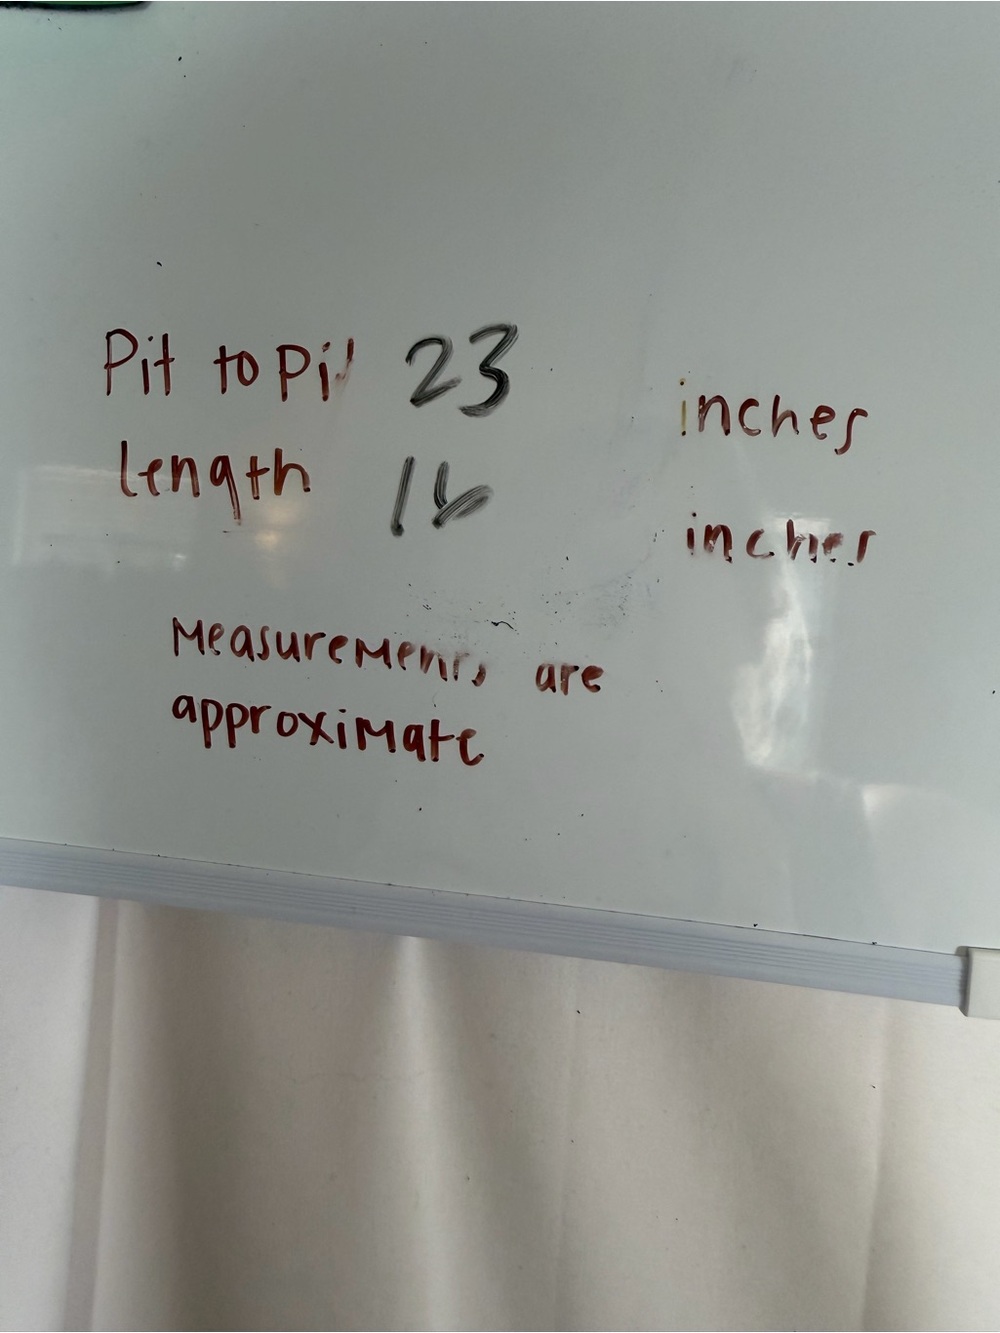 Pit to Pit 23 inches
length 16 inches
Measurements are
approximate